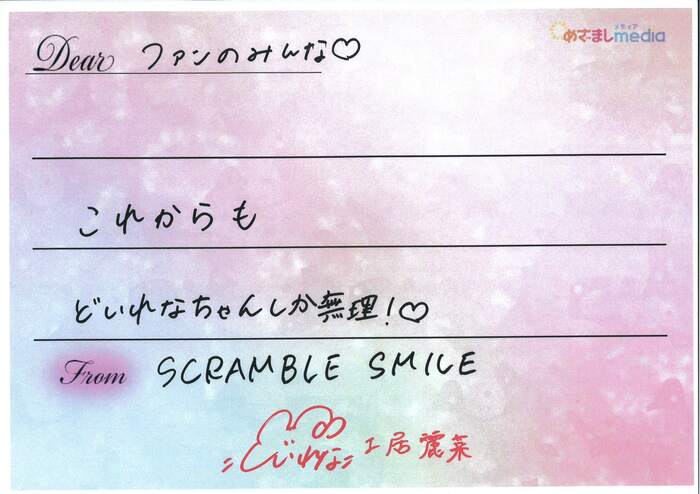 Dear ファンのみんな♡
メディア
めざましmedia
これからも
どいれなちゃんしか無理!♡
From SCRAMBLE SMILE
どいれな 土居麗菜